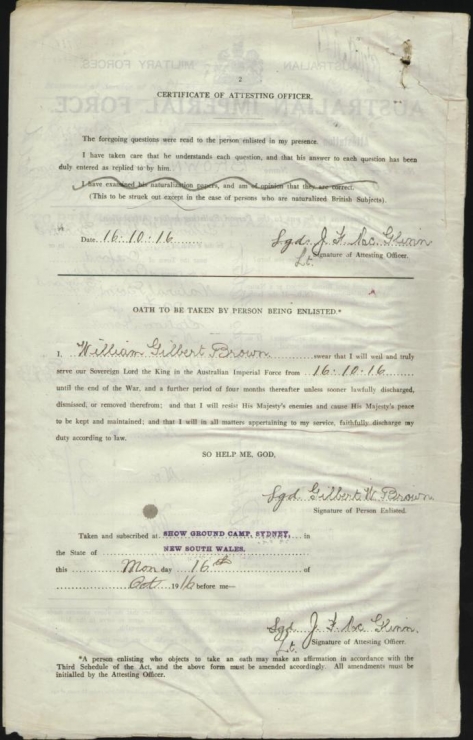 2
CERTIFICATE OF ATTESTING OFFICER.
The foregoing questions were read to the person enlisted in my presence.
I have taken care that he understands each question, and that his answer to each question has been
duly entered as replied to by him.
I have examined his naturalization papers, and am of opinion that they are correct.
(This to be struck out except in the case of persons who are naturalized British Subjects).
Date 16·10·16
Sgd. J. F. Mc Glinn
Lt. Signature of Attesting Officer.
OATH TO BE TAKEN BY PERSON BEING ENLISTED.*
I, William Gilbert Brown swear that I will well and truly
serve our Sovereign Lord the King in the Australian Imperial Force from 16·10·16
until the end of the War, and a further period of four months thereafter unless sooner lawfully discharged,
dismissed, or removed therefrom; and that I will resist His Majesty's enemies and cause His Majesty's peace
to be kept and maintained; and that I will in all matters appertaining to my service, faithfully discharge my
duty according to law.
SO HELP ME, GOD.
Sgd Gilbert W. Brown
Signature of Person Enlisted.
Taken and subscribed at SHOW GROUND CAMP, SYDNEY, in
the State of NEW SOUTH WALES.
this Mon day 16th of
Oct 1916 before me—
Sgd J. F. Mc Glinn.
Lt. Signature of Attesting Officer.
*A person enlisting who objects to take an oath may make an affirmation in accordance with the
Third Schedule of the Act, and the above form must be amended accordingly. All amendments must be
initialled by the Attesting Officer.